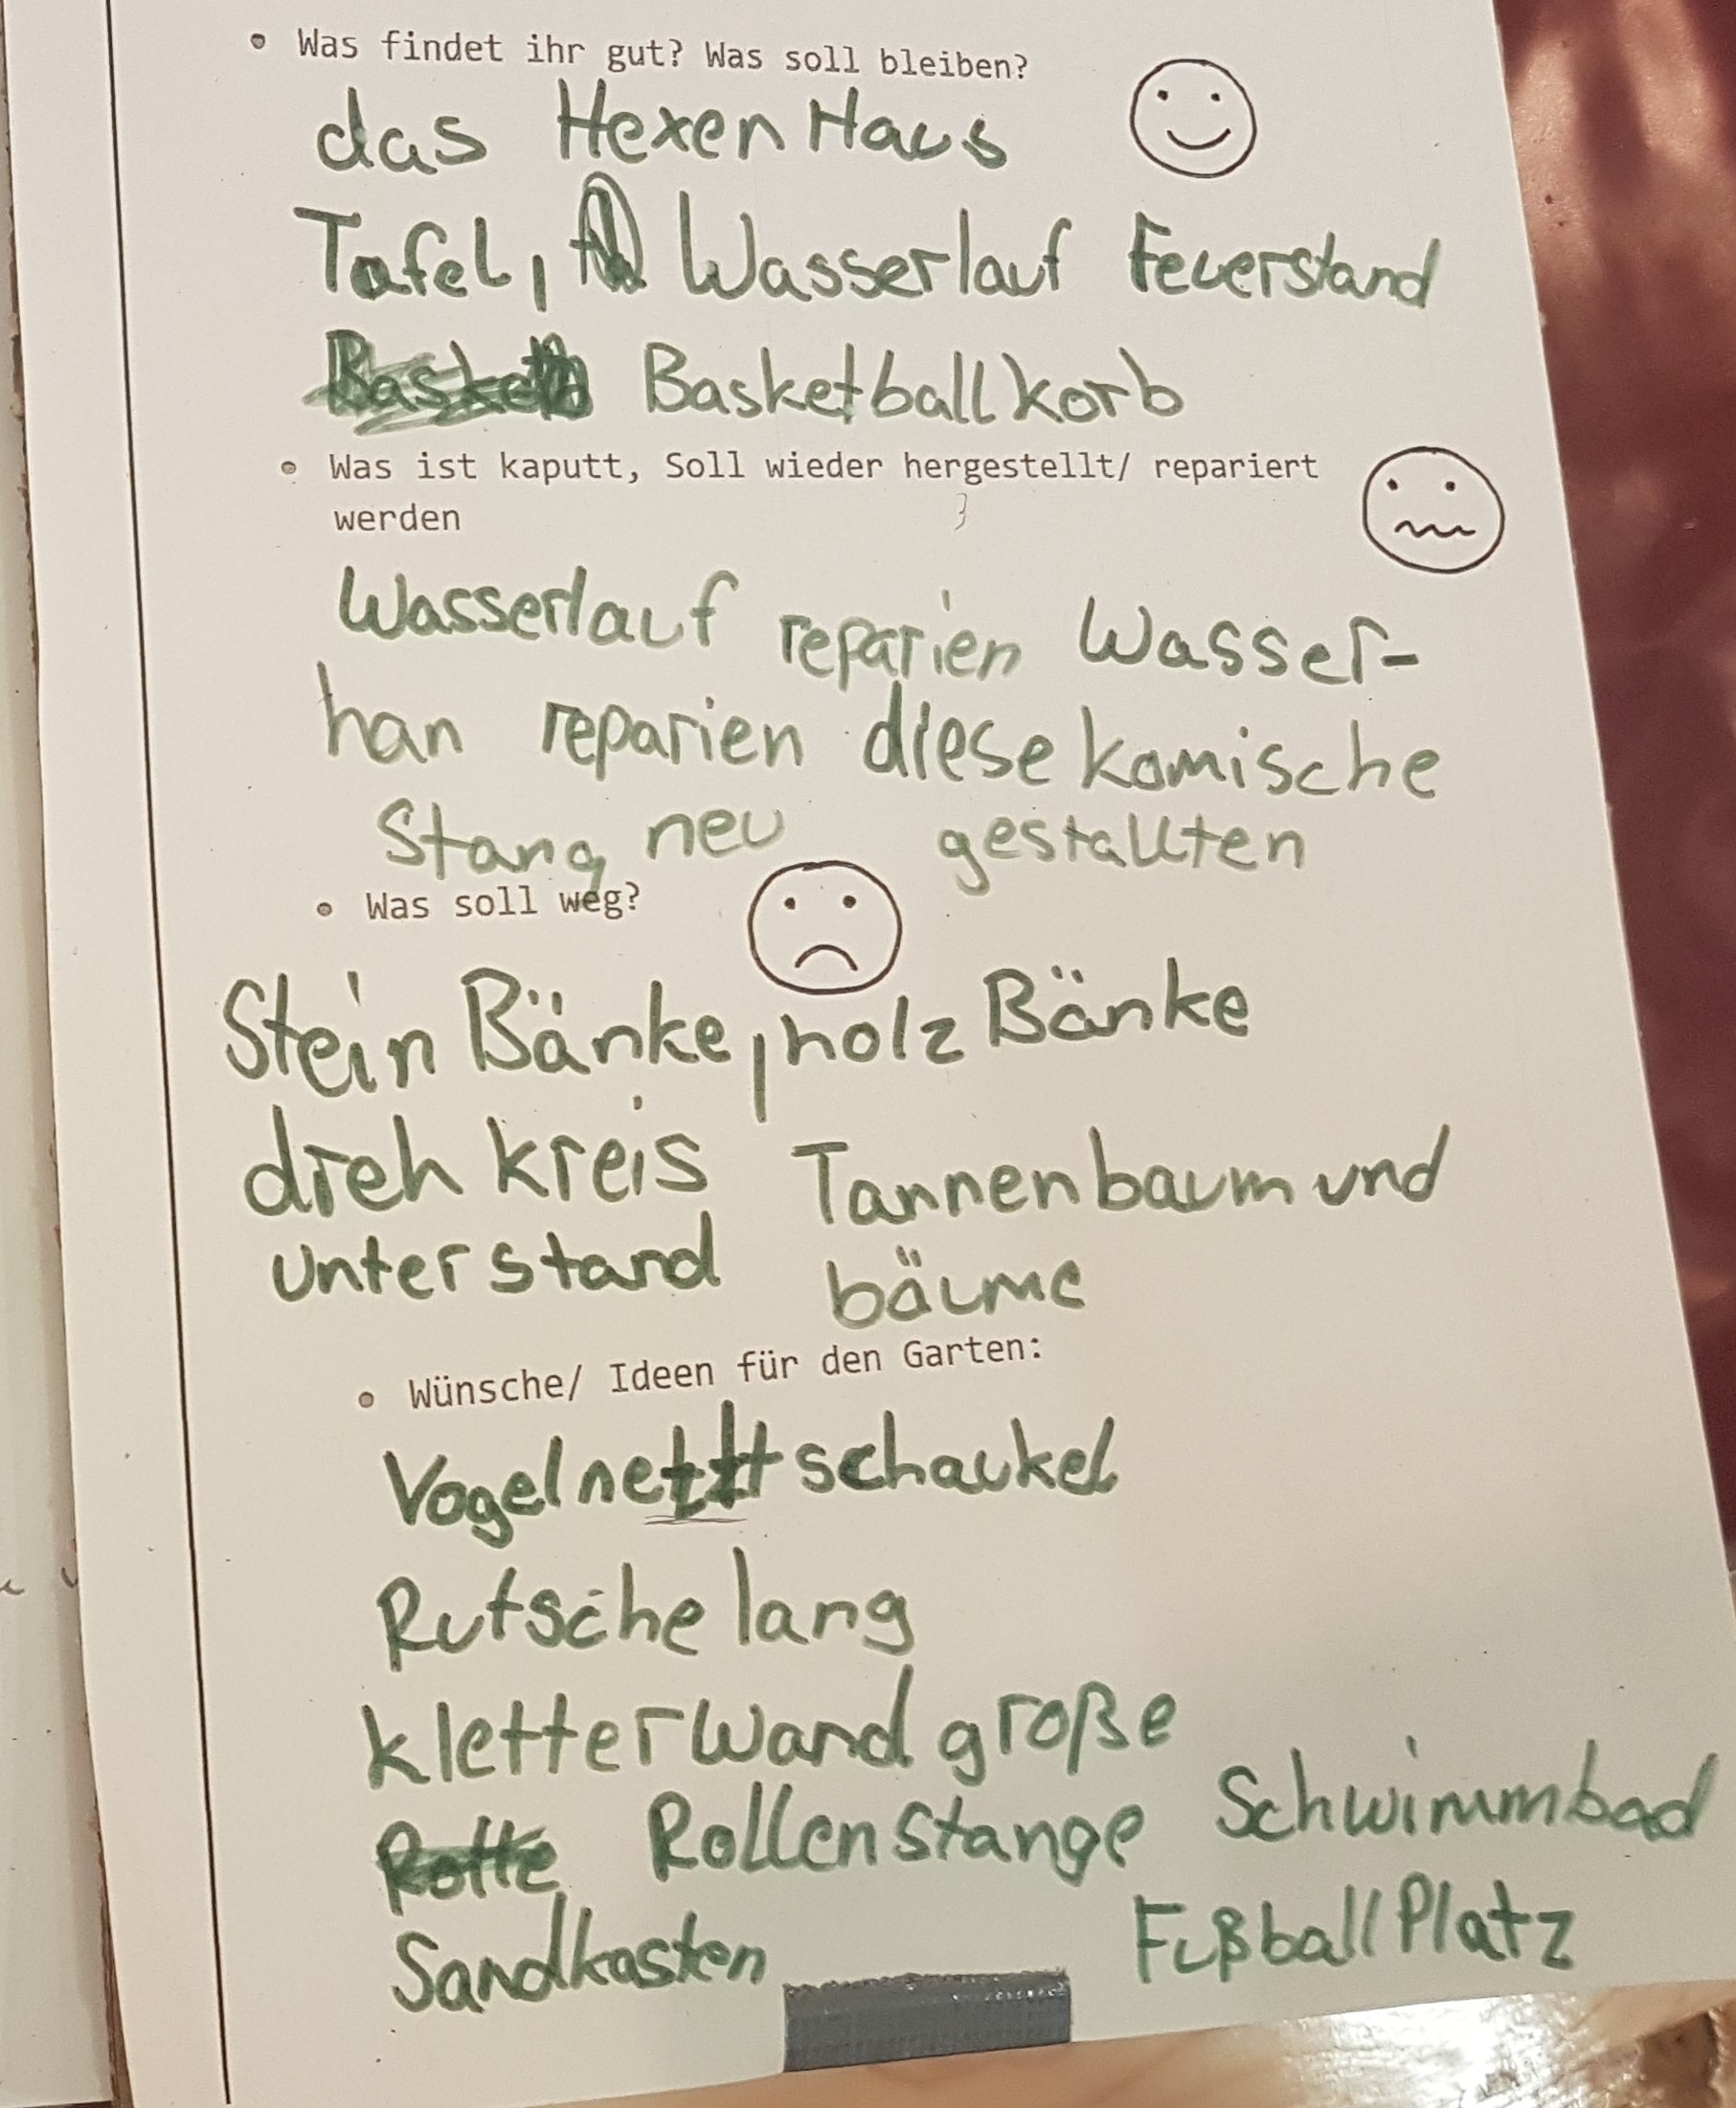 • Was findet ihr gut? Was soll bleiben?
das Hexen Haus
Tafel, Wasserlauf Feuerstand
Basketballkorb
• Was ist kaputt, Soll wieder hergestellt/ repariert
werden
Wasserlauf reparien Wasser-
han reparien diese komische
Stang neu gestallten
• Was soll weg?
Stein Bänke, holz Bänke
dreh kreis Tannenbaum und
unterstand bäume
• Wünsche/ Ideen für den Garten:
Vogelnettschaukel
Rutsche lang
kletterwand große
Rollenstange Schwimmbad
Sandkasten Fußballplatz